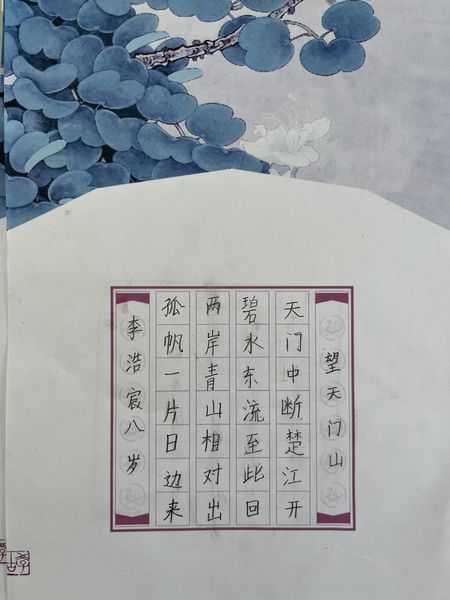 望天门山
天门中断楚江开
碧水东流至此回
两岸青山相对出
孤帆一片日边来
李浩宸八岁